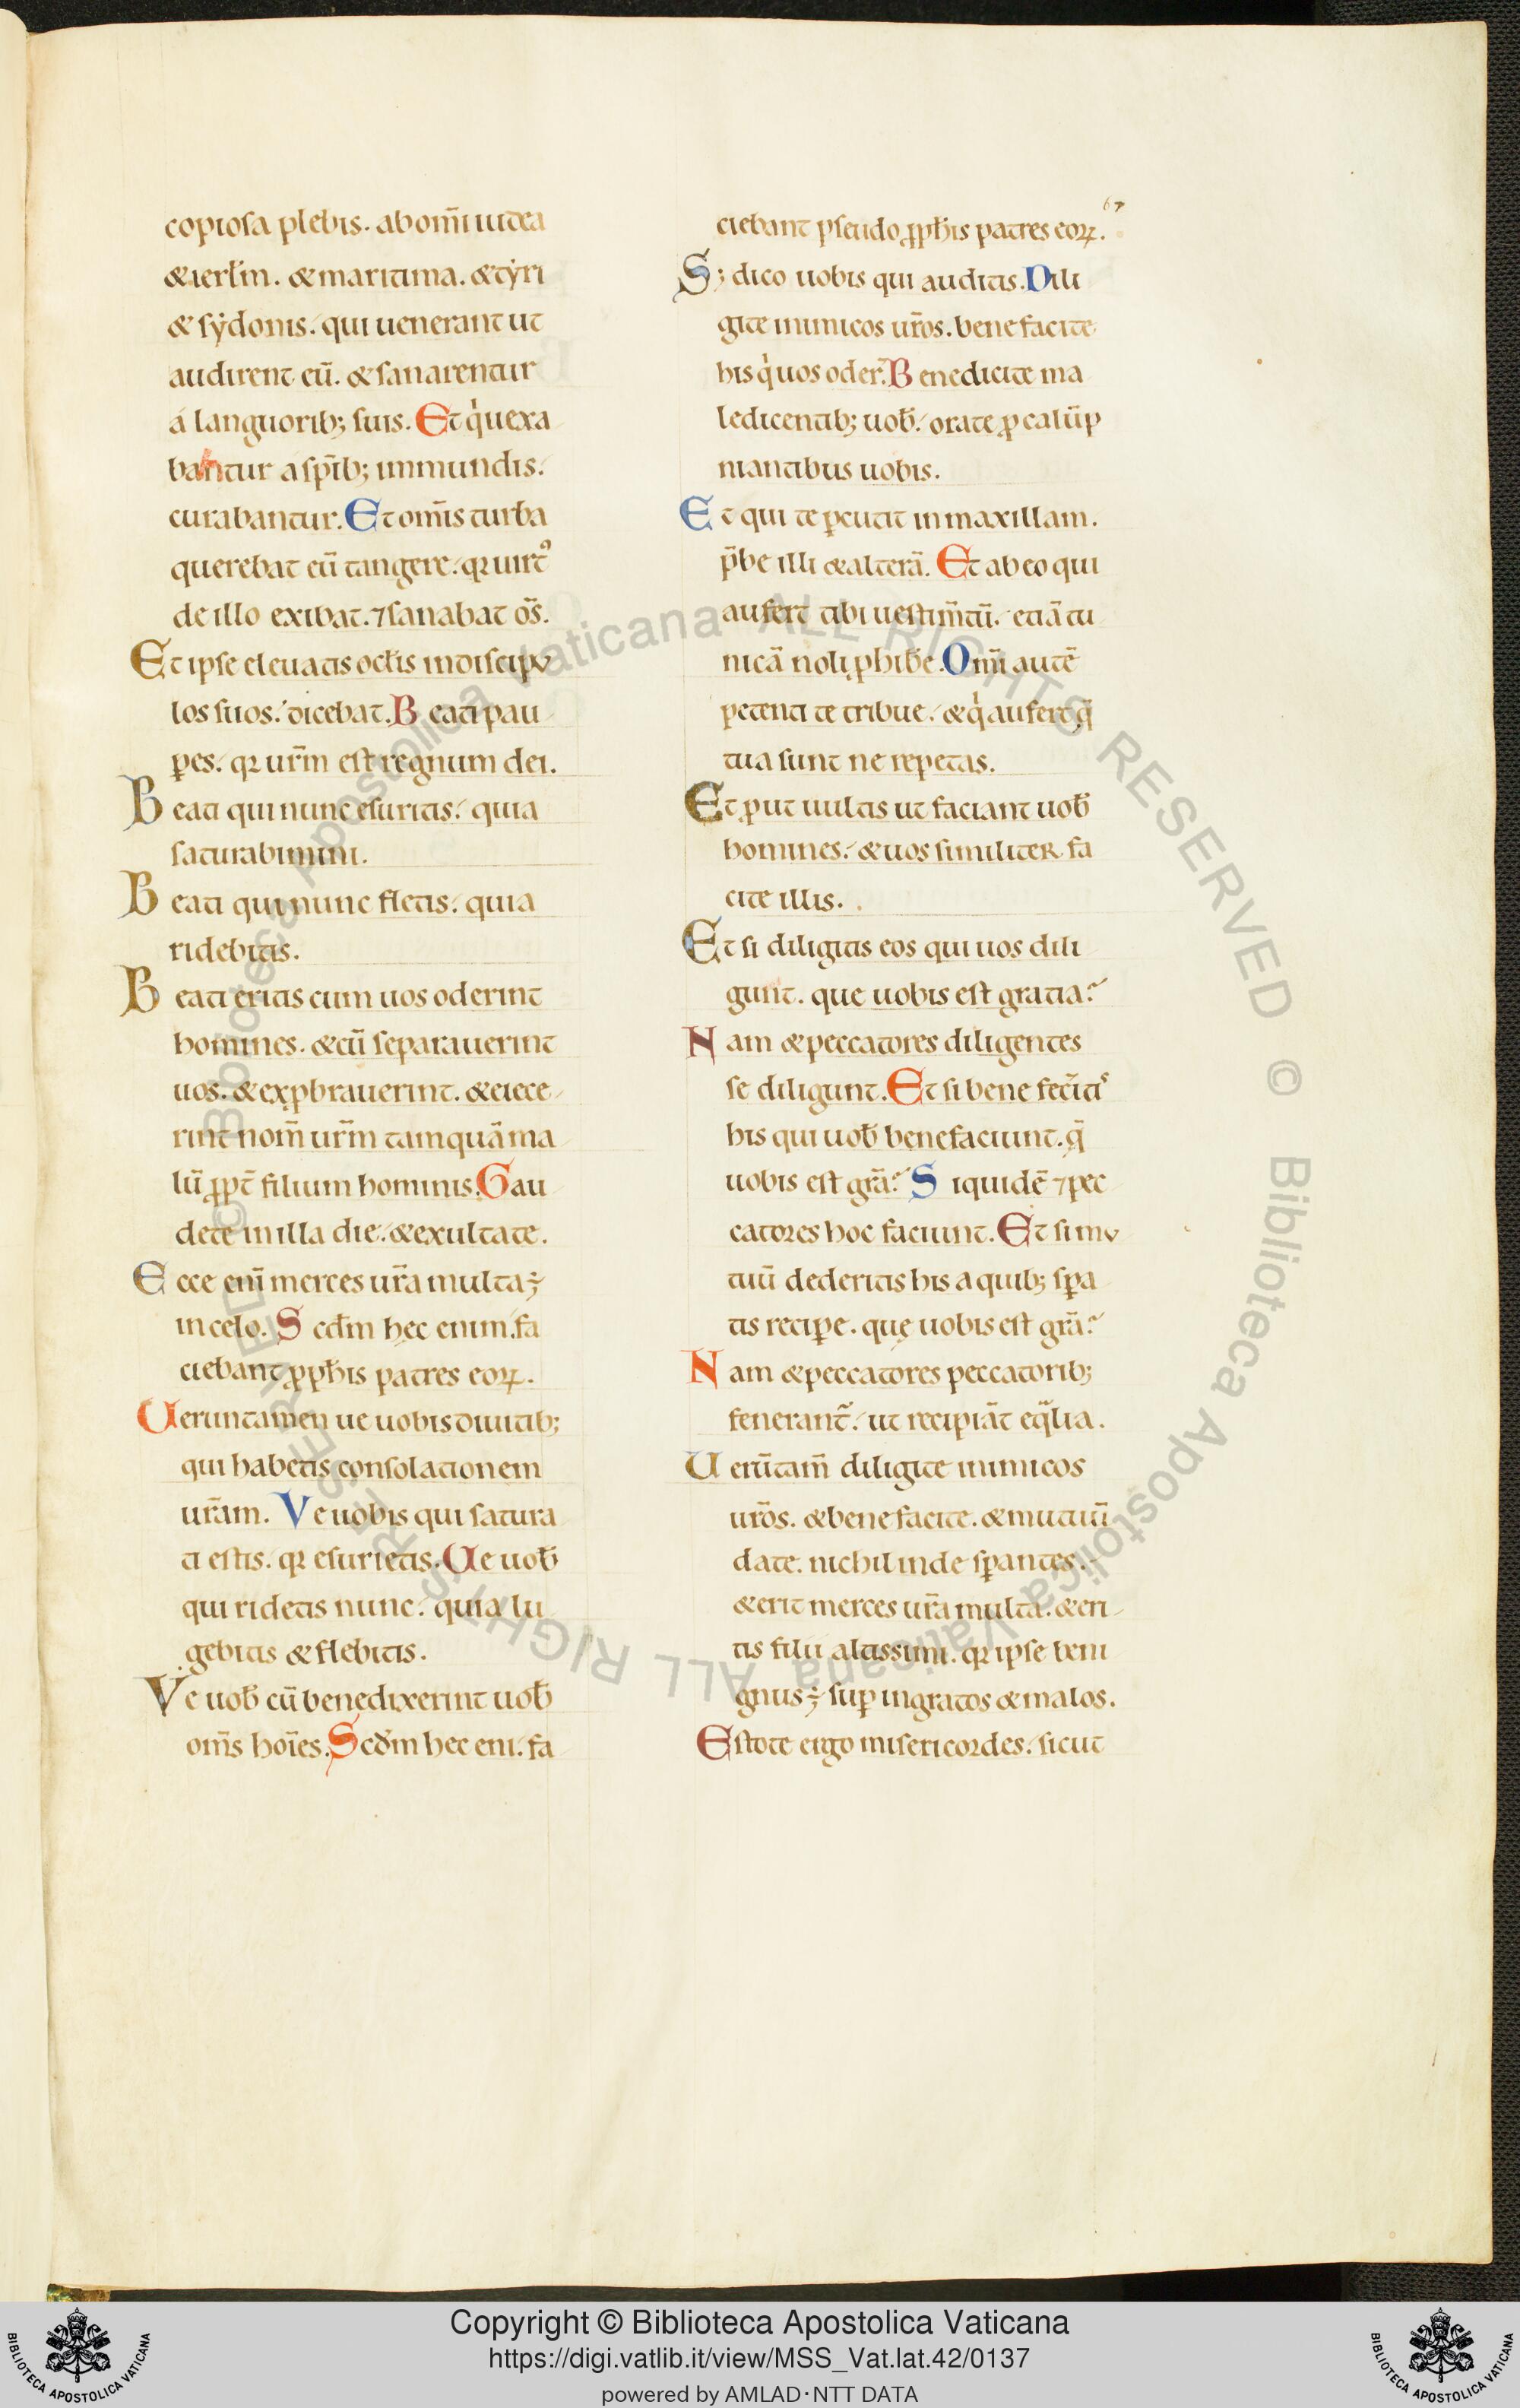 copiosa plebis. ab om̄i iudea
& ierl̄m. & maritima. & tẏri
& sẏdonis. qui uenerant ut
audirent eū. & sanarentur
a languorib; suis. Et q̇ uexa
bantur a sp̄ib; inmundis.
curabantur. Et om̄is turba
querebat eū tangere. qꝛ uirtꝰ
de illo exibat. ⁊ sanabat oc̄s.
Et ipse eleuatis ocl̄is in discipu
los suos. dicebat. Beati pau
ꝑes. qꝛ ur̄m est regnum dei.
Beati qui nunc esuritis. quia
saturabimini.
Beati qui nunc fletis. quia
ridebitis.
Beati eritis cum uos oderint
homines. & cū separauerint
uos. & exꝓbrauerint. & eiece
rint nom̄ ur̄m tamquā ma
lū ꝓpt̄ filium hominis. Gau
dete in illa die. & exultate.
Ecce eni̅ merces ur̄a multa ÷
in celo. Scd̄m hęc enim. fa
ciebant ꝓph̄is patres eoꝝ.
Ueruntamen ue uobis diuitib;
qui habetis consolationem
ur̄am. Ve uobis qui satura
ti estis. qꝛ esurietis. Ue uob̄
qui ridetis nunc. quia lu
gebitis & flebitis.
Ve uob̄ cū benedixerint uob̄
om̄s hoīes. Scd̄m hec eni. fa
67
ciebant pseudo ꝓph̄is patres eoꝝ.
S; dico uobis qui auditis. Dili
gite inimicos ur̄os. bene facite
his q̇ uos oder̄. Benedicite ma
ledicentib; uob̄. orate ꝓ calūp
niantibus uobis.
Et qui te ꝑcutit in maxillam.
p̄be illi & alterā. Et ab eo qui
aufert tibi uestim̄tū. etiā tu
nicā noli ꝓhib̄e. Omi̅ autē
petenti te tribue. & q̇ aufert q̄
tua sunt ne repetas.
Et ꝓut uultis ut faciant uob̄
homines. & uos similiter fa
cite illis.
Et si diligitis eos qui uos dili
gunt. que uobis est gratia?
Nam & peccatores diligentes
se diligunt. Et si bene fec̄itis
his qui uob̄ benefaciunt. q̄
uobis est grā? Siquidē ⁊ pec
catores hoc faciunt. Et si mu
tuū dederitis his a quib; sꝑa
tis reciꝑe. quę uobis est grā?
Nam & peccatores peccatorib;
fenerant̄. ut recipiāt eq̄lia.
Uerūtam̄ diligite inimicos
ur̄os. & bene facite. & mutuū
date. nichil inde sꝑantes.
& erit merces ur̄a multa. & eri
tis filii altissimi. qꝛ ipse beni
gnus ÷ suꝑ ingratos & malos.
Estote ergo misericordes. sicut
© Biblioteca Apostolica Vaticana ALL RIGHTS RESERVED © Biblioteca Apostolica Vaticana ALL RIGHTS RESERVED
Copyright © Biblioteca Apostolica Vaticana
https://digi.vatlib.it/view/MSS_Vat.lat.42/0137
powered by AMLAD·NTT DATA
BIBLIOTECA APOSTOLICA VATICANA
BIBLIOTECA APOSTOLICA VATICANA